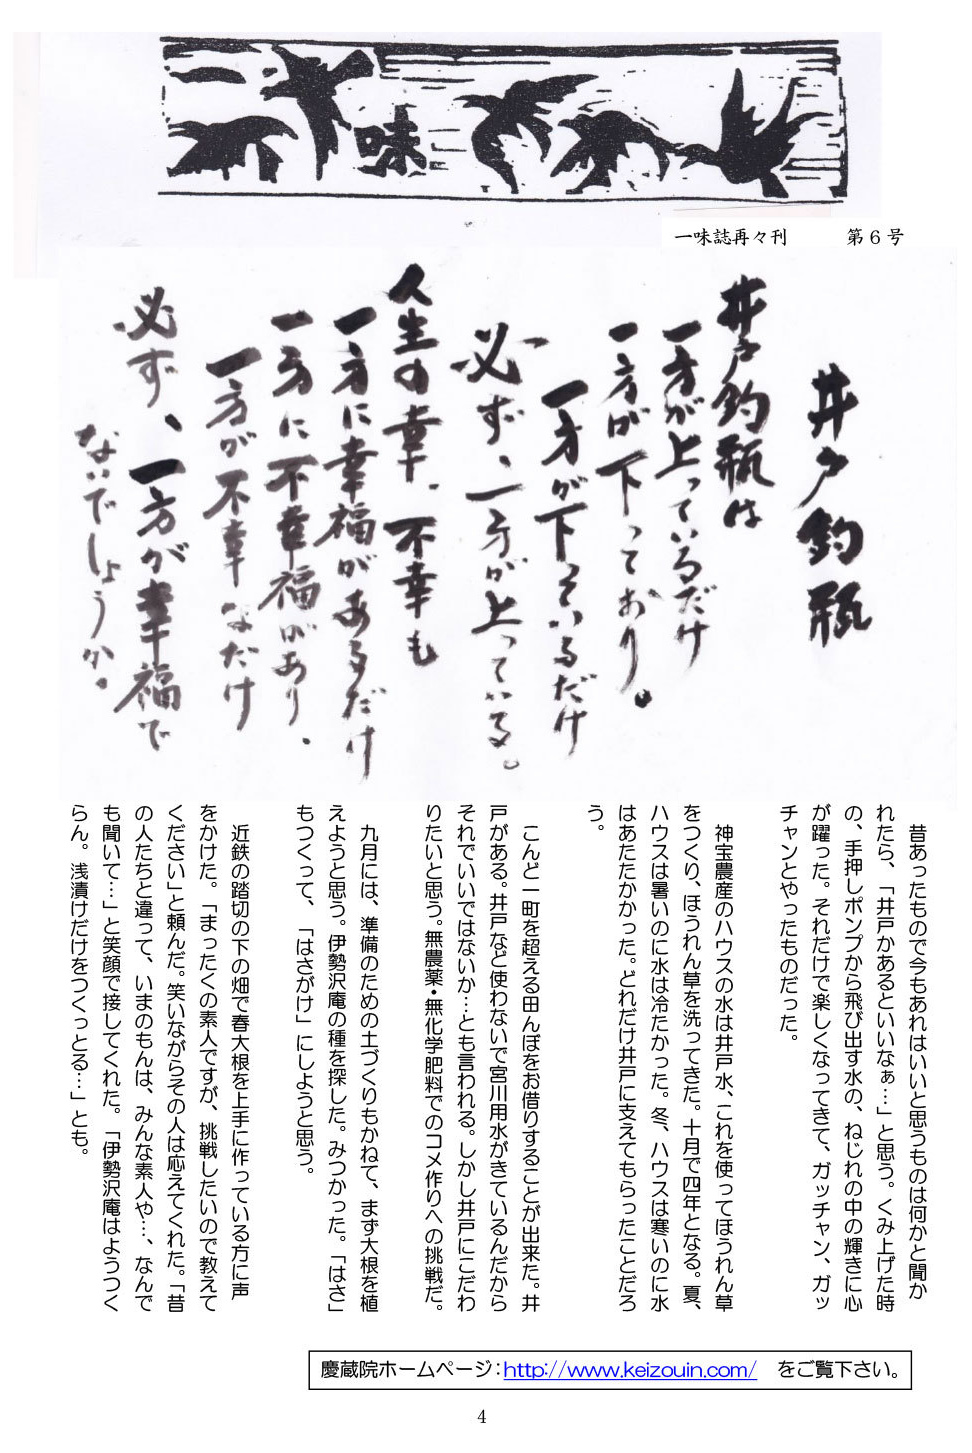 一味
一味誌再々刊　第６号
井戸釣瓶
井戸釣瓶は
一方が上っているだけ
一方が下っており。
一方が下っているだけ
必ず、一方が上っている。
人生の幸、不幸も
一方に幸福があるだけ
一方に不幸福があり、
一方が不幸なだけ
必ず、一方が幸福で
ないでしょうか。
昔あったもので今もあれはいいと思うものは何かと聞か
れたら、「井戸かあるといいなぁ…」と思う。くみ上げた時
の、手押しポンプから飛び出す水の、ねじれの中の輝きに心
が躍った。それだけで楽しくなってきて、ガッチャン、ガッ
チャンとやったものだった。
神宝農産のハウスの水は井戸水、これを使ってほうれん草
をつくり、ほうれん草を洗ってきた。十月で四年となる。夏、
ハウスは暑いのに水は冷たかった。冬、ハウスは寒いのに水
はあたたかかった。どれだけ井戸に支えてもらったことだろ
う。
こんど一町を超える田んぼをお借りすることが出来た。井
戸がある。井戸など使わないで宮川用水がきているんだから
それでいいではないか…とも言われる。しかし井戸にこだわ
りたいと思う。無農薬・無化学肥料でのコメ作りへの挑戦だ。
九月には、準備のための土づくりもかねて、まず大根を植
えようと思う。伊勢沢庵の種を探した。みつかった。「はさ」
もつくって、「はさがけ」にしようと思う。
近鉄の踏切の下の畑で春大根を上手に作っている方に声
をかけた。「まったくの素人ですが、挑戦したいので教えて
ください」と頼んだ。笑いながらその人は応えてくれた。「昔
の人たちと違って、いまのもんは、みんな素人や…、なんで
も聞いて…」と笑顔で接してくれた。「伊勢沢庵はようつく
らん。浅漬けだけをつくっとる…」とも。
慶蔵院ホームページ：http://www.keizouin.com/　をご覧下さい。
4